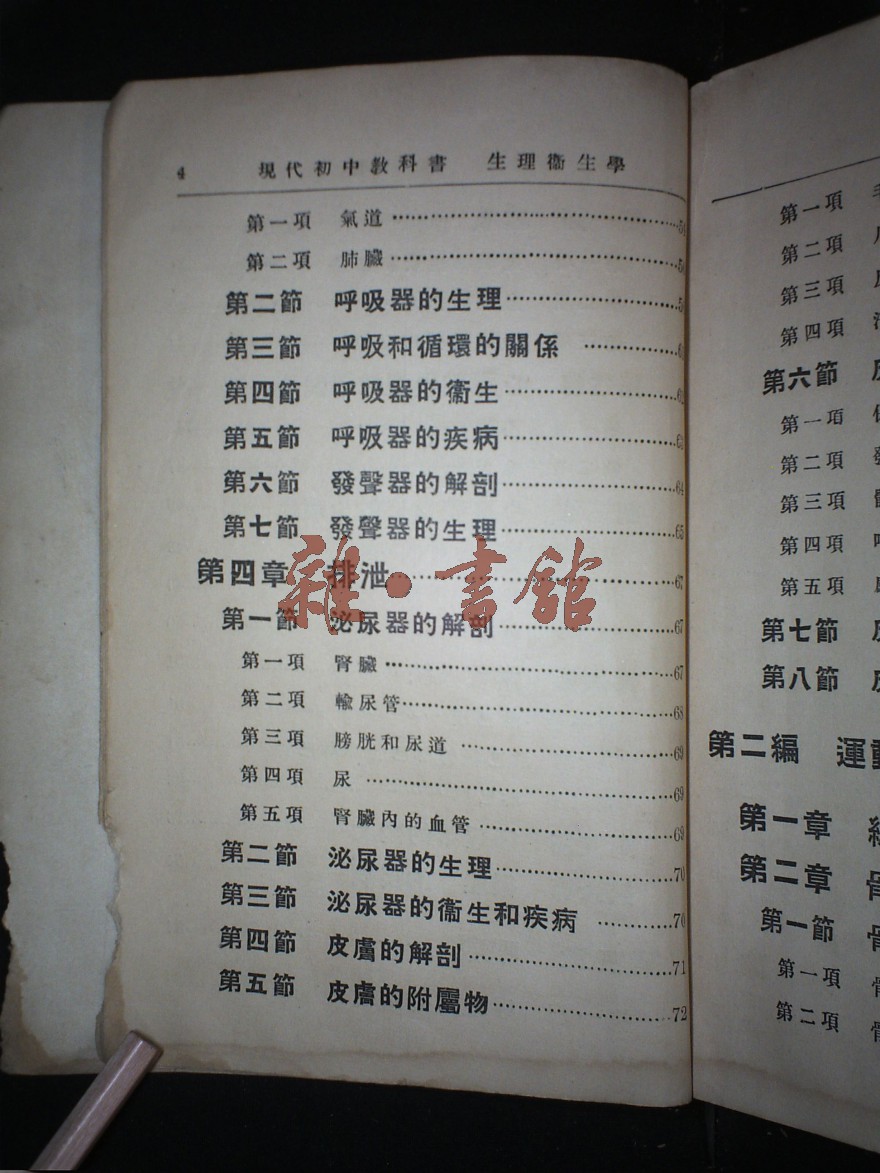 4 現代初中教科書 生理衞生學
第一項 氣道
第二項 肺臟
第二節 呼吸器的生理
第三節 呼吸和循環的關係
第四節 呼吸器的衞生
第五節 呼吸器的疾病 63
第六節 發聲器的解剖 64
第七節 發聲器的生理 65
第四章 排泄 67
第一節 泌尿器的解剖 67
第一項 腎臟 67
第二項 輸尿管 68
第三項 膀胱和尿道 69
第四項 尿 69
第五項 腎臟內的血管 69
第二節 泌尿器的生理 70
第三節 泌尿器的衞生和疾病 70
第四節 皮膚的解剖 71
第五節 皮膚的附屬物 72
雜·書館
第一項
第二項
第三項
第四項
第六節
第一項
第二項
第三項
第四項
第五項
第七節
第八節
第二編 運動
第一章
第二章 骨
第一節 骨
第一項 骨
第二項 骨